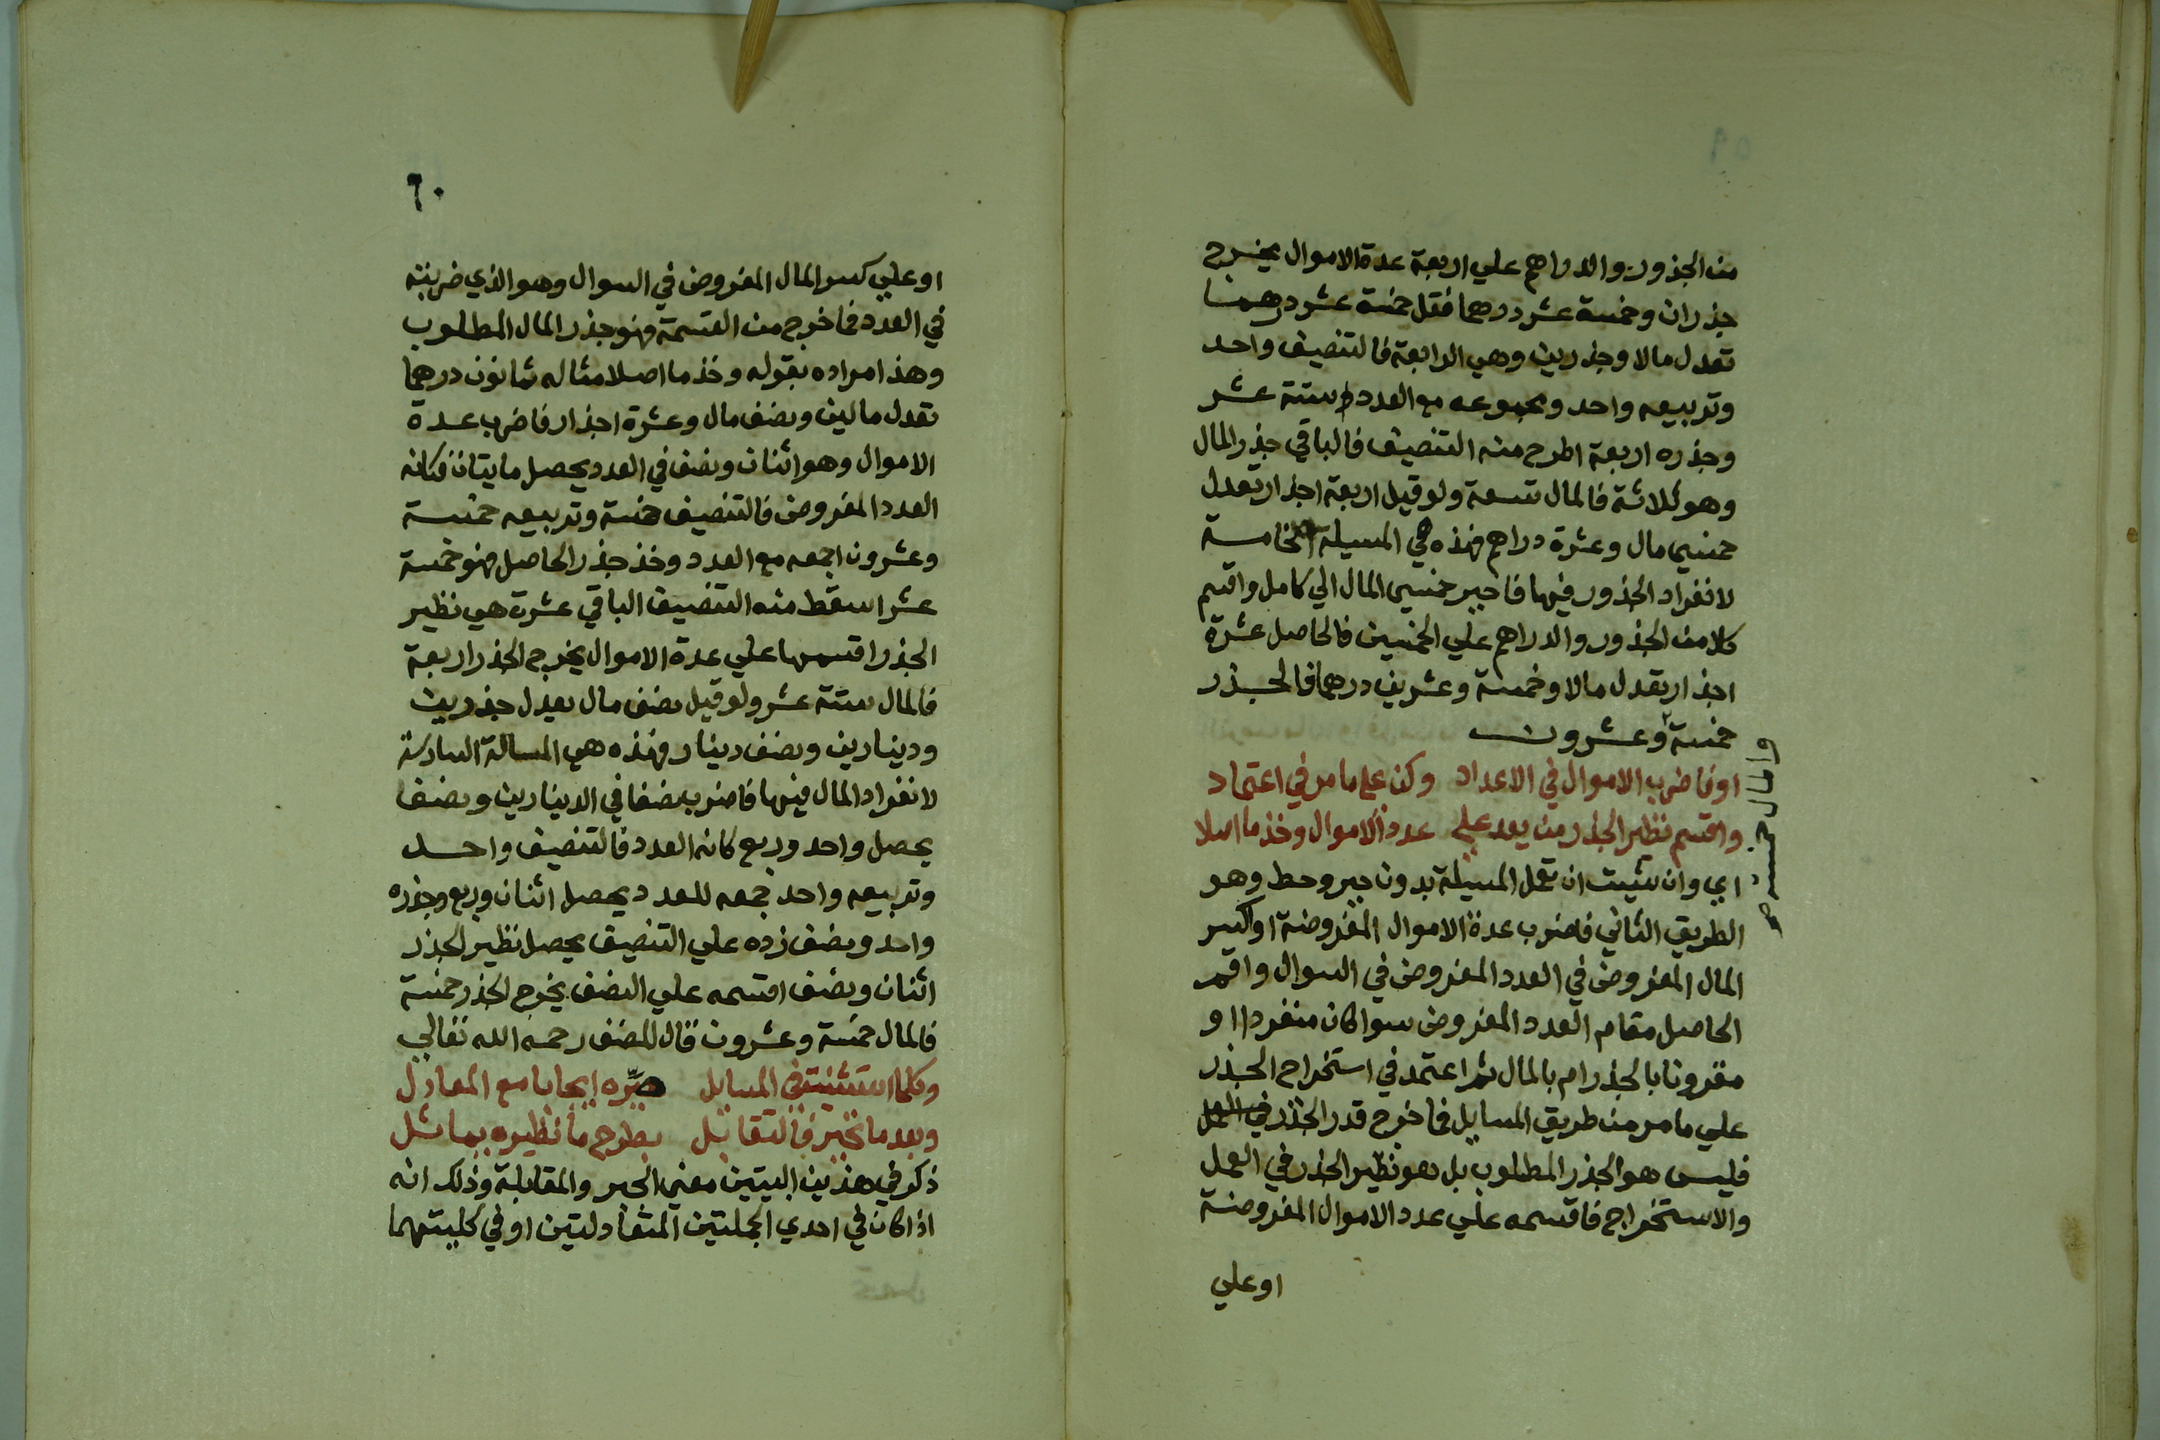 من الجذور والدراهم علي اربعة عدة الاموال يخرج
جذران وخمسة عشر درهما فقل خمسة عشر درهما
تعدل مالا وجذرين وهي الرابعة فالتنصيف واحد
وتربيعه واحد ومجموعه مع العدد ستة عشر
وجذره اربعة اطرح منه التنصيف فالباقي جذر المال
وهو ثلاثة فالمال تسعة ولو قيل اربعة اجذار تعدل
خمسي مال وعشرة دراهم فهذه هي المسيلة الخامسة
لانفراد الجذور فيها فاجبر خمسي المال الي كامل واقسم
كلا من الجذور والدراهم علي الخمسين فالحاصل عشرة
اجذار تعدل مالا وخمسة وعشرين درهما فالجذر
خمسة وعشرون
والمال خمسة
او فاضرب الاموال في الاعداد وكن علي ما مر في اعتماد
واقسم نظير الجذر من بعد علي عدد الاموال وخذ ما اصلا
اي وان شيت ان تعمل المسيلة بدون جبر وحط وهو
الطريق الثاني فاضرب عدة الاموال المفروضة او كسر
المال المفروض في العدد المفروض في السوال واقم
الحاصل مقام العدد المفروض سوا كان منفردا او
مقرونا بالجذر ام بالمال ثم اعتمد في استخراج الجذر
علي ما مر من طريق المسايل فما خرج قدر الجذر في العمل
فليس هو الجذر المطلوب بل هو نظير الجذر في العمل
والاستخراج فاقسمه علي عدد الاموال المفروضة
او علي
٦٠
او علي كسر المال المفروض في السوال وهو الذي ضربته
في العدد فما خرج من القسمة فهو جذر المال المطلوب
وهذا مراده بقوله وخذ ما اصلا مثاله ثمانون درهما
تعدل مالين ونصف مال وعشرة اجذار فاضرب عدة
الاموال وهو اثنان ونصف في العدد يحصل مايتان فكانه
العدد المفروض فالتنصيف خمسة وتربيعه خمسة
وعشرون اجمعه مع العدد وخذ جذر الحاصل فهو خمسة
عشر اسقط منه التنصيف الباقي عشرة هي نظير
الجذر اقسمها علي عدة الاموال يخرج الجذر اربعة
فالمال ستة عشر ولو قيل نصف مال يعدل جذرين
ودينارين ونصف دينار فهذه هي المسالة السادسة
لانفراد المال فيها فاضرب نصفا في الدينارين ونصف
يحصل واحد وربع كانه العدد فالتنصيف واحد
وتربيعه واحد جمعه للعدد يحصل اثنان وربع وجذره
واحد ونصف زده علي التنصيف يحصل نظير الجذر
اثنان ونصف اقسمه علي النصف يخرج الجذر خمسة
فالمال خمسة وعشرون قال المصنف رحمه الله تعالي
وكلما استثنيت في المسايل صيّره ايجابا مع المعادل
وبعد ما تجبر فالتقابل بطرح ما نظيره يماثل
ذكر في هذين البيتين معني الجبر والمقابلة وذلك انه
اذا كان في احدي الجملتين المتعادلتين او في كليتهما